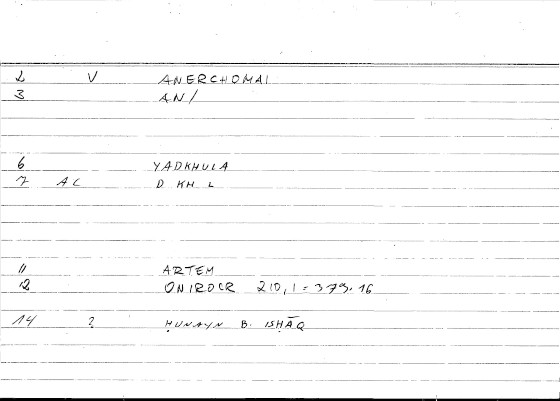 2 V ANERCHOMAI
3 AN/
6 YADKHULA
7 AC D KH L
11 ARTEM
12 ONIROCR 210,1 = 379.16
14 ? ḤUNAYN B. ISḤĀQ